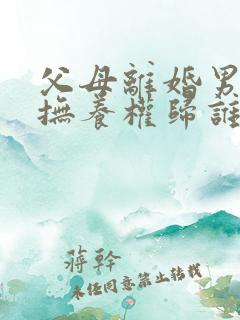 父母離婚男
撫養權歸誰
蔣幹
未經同意禁止轉載